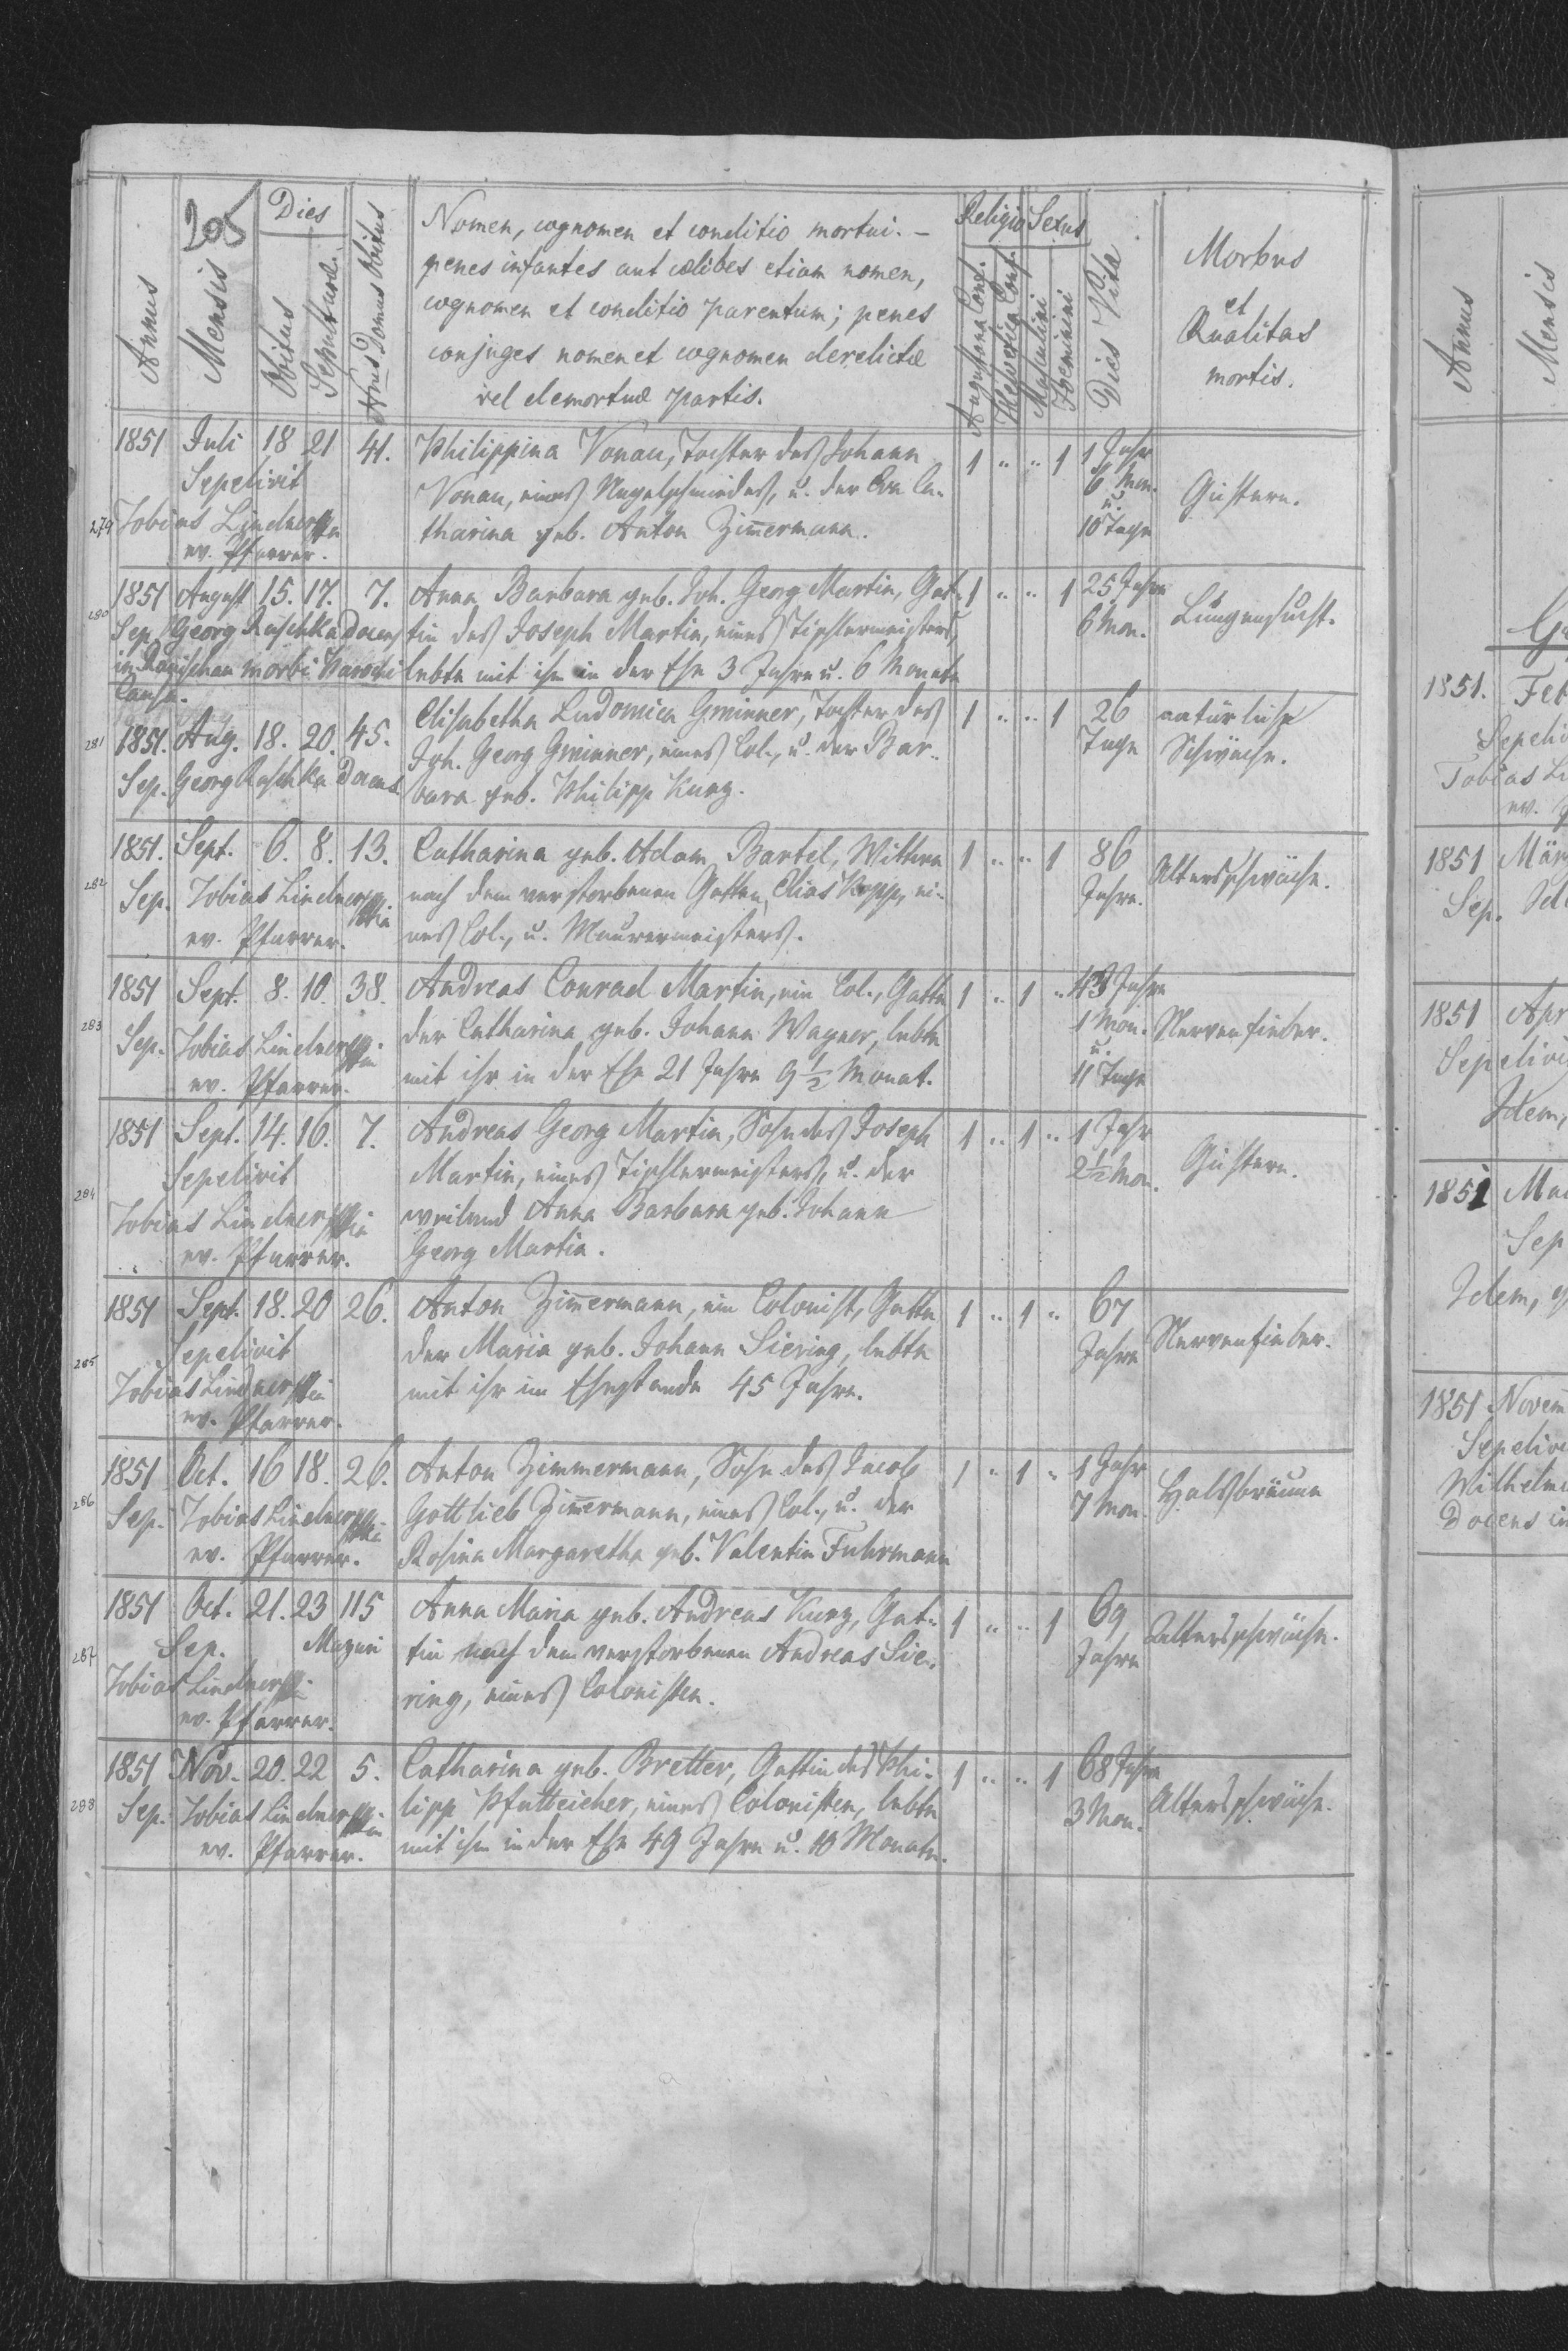 205
Annus
Mensis
Dies
Obitus
Sepulturæ
Nrus Domus Obitus
Nomen, cognomen et conditio mortui. –
penes infantes aut cælibes etiam nomen,
cognomen et conditio parentum; penes
conjuges nomen et cognomen derelictæ
vel demortuæ partis.
Religio
Sexus
Augustana Conf.
Helvetica Conf.
Masculini
Foeminini
Dies Vitæ
Morbus
et
Qualitas
mortis.
279
1851 Juli 18 21 41.
Sepelivit
Tobias Lindner
ev. Pfarrer.
Philippina Vonau, Tochter des Johann
Vonau, eines Nagelschmiedes, u. der Eva Ca-
tharina geb. Anton Zimermann.
1 " " 1
1 Jahr
6 Mon.
u.
10 Tage
280
1851 August 15. 17. 7.
Sep. Georg Raschka Docens
in Ranischau morbi Parochi
causa.
Anna Barbara geb. Joh. Georg Martin, Gat-
tin des Joseph Martin, eines Tischlermeisters,
lebte mit ihm in der Ehe 3 Jahre u. 6 Monate
1 " " 1
25 Jahre
6 Mon.
Lungensucht.
281
1851. Aug. 18. 20. 45.
Sep. Georg Raschka Docens
Elisabetha Ludovica Gminner, Tochter des
Joh. Georg Gminner, eines Col., u. der Bar-
bara geb. Philipp Kung.
1 " " 1
26
Tage
natürliche
Schwäche.
282
1851. Sept. 6. 8. 13.
Sep. Tobias Lindner
ev. Pfarrer.
Catharina geb. Adam Bartel, Wittwe
nach dem verstorbenen Gatten, Elias Kopp, ei-
nes Col., u. Maurermeisters.
1 " " 1
86
Jahre.
Altersschwäche.
283
1851 Sept. 8. 10. 38.
Sep. Tobias Lindner
ev. Pfarrer.
Andreas Conrad Martin, ein Col., Gatte
der Catharina geb. Johann Wagner, lebte
mit ihr in der Ehe 21 Jahre 9 1/2 Monat.
1 " 1 "
43 Jahre
1 Mon.
u.
11 Tage
Nervenfieber.
284
1851 Sept. 14. 16. 7.
Sepelivit
Tobias Lindner
ev. Pfarrer.
Andreas Georg Martin, Sohn des Joseph
Martin, eines Tischlermeisters, u. der
weiland Anna Barbara geb. Johann
Georg Martin.
1 " 1 "
1 Jahr
2 1/2 Mon.
285
1851 Sept. 18. 20 26.
Sepelivit
Tobias Lindner
ev. Pfarrer.
Anton Zimermann, ein Colonist, Gatte
der Maria geb. Johann Siering, lebte
mit ihr im Ehestande 45 Jahre.
1 " 1 "
67
Jahre
Nervenfieber.
286
1851 Oct. 16 18. 26.
Sep. Tobias Lindner
ev. Pfarrer.
Anton Zimmermann, Sohn des Jacob
Gottlieb Zimermann, eines Col., u. der
Rosina Margaretha geb. Valentin Fuhrmann
1 " 1 "
1 Jahr
7 Mon.
Halsbräune
287
1851 Oct. 21. 23 115
Sep. Mazuri
Tobias Lindner
ev. Pfarrer.
Anna Maria geb. Andreas Kung, Gat-
tin nach dem verstorbenen Andreas Sie-
ring, eines Colonisten.
1 " " 1
69
Jahre
Altersschwäche.
288
1851 Nov. 20. 22 5.
Sep. Tobias Lindner
ev. Pfarrer.
Catharina geb. Bretter, Gattin des Phi-
lipp Pfutteicher, eines Colonisten, lebte
mit ihm in der Ehe 49 Jahre u. 10 Monate.
1 " " 1
68 Jahre
3 Mon.
Altersschwäche.
Annus
Mensis
1851. Feb
Tobias Li
1851 Mär
Sep.
1851 Apr
Idem,
1851
Sep
Idem,
1851 Novem
Docens in